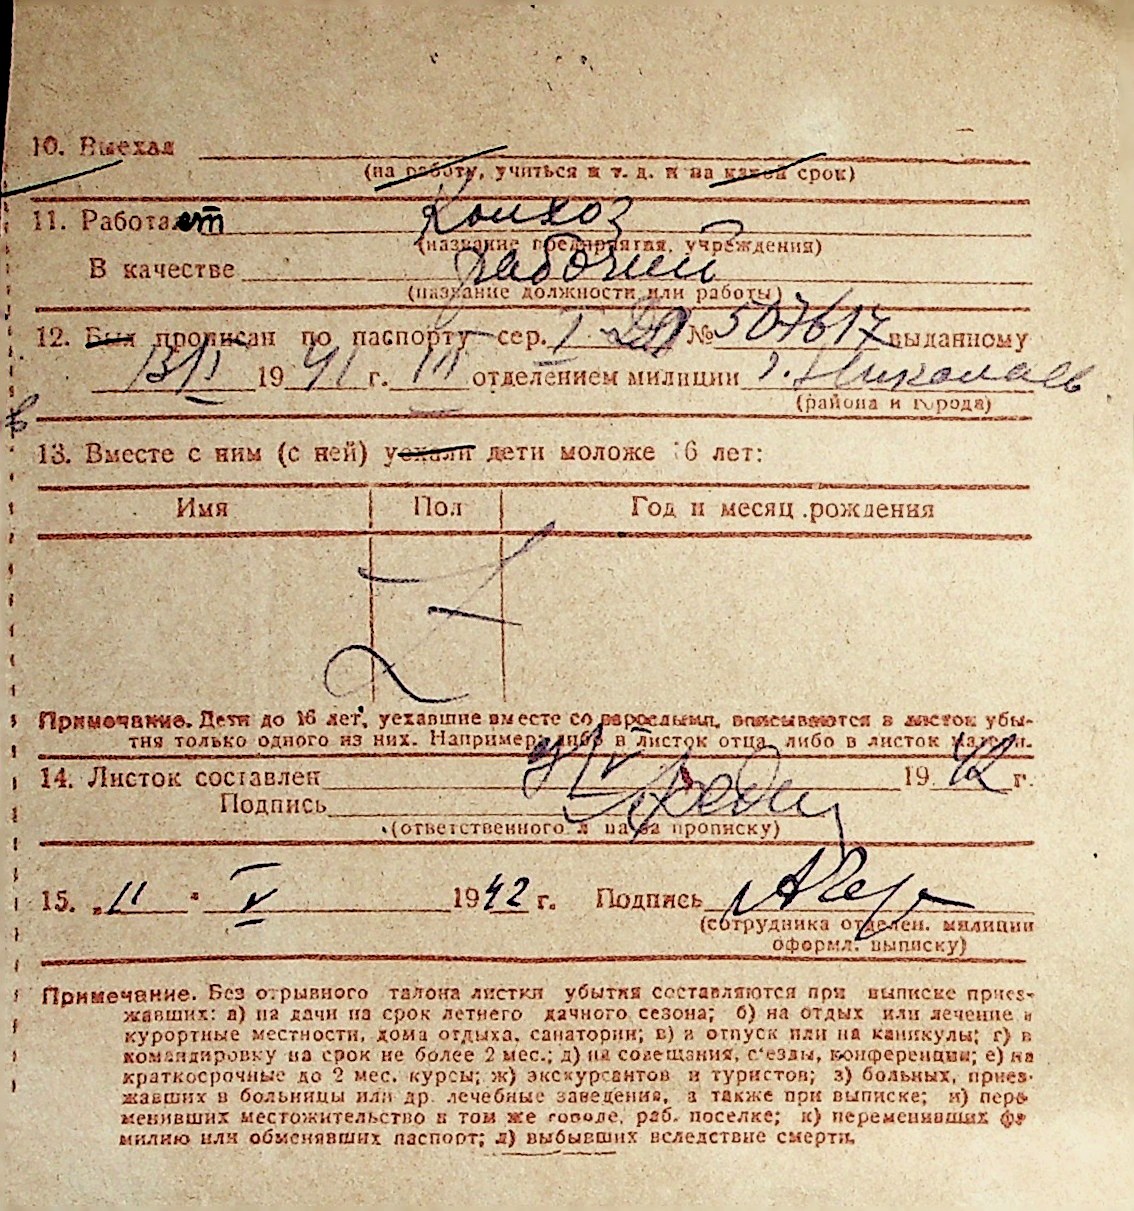 10. Выехал
(на работу, учиться и т. д. и на какой срок)
11. Работает Колхоз
(название предприятия, учреждения)
В качестве рабочий
(название должности или работы)
12. Был прописан по паспорту сер. I № 507617 выданному
19 41 г. III отделением милиции г. Николаев
(района и города)
13. Вместе с ним (с ней) уехали дети моложе 16 лет:
Имя Пол Год и месяц рождения
Примечание. Дети до 16 лет, уехавшие вместе со взрослыми, вписываются в листок убы-
тия только одного из них. Например: либо в листок отца, либо в листок матери.
14. Листок составлен V 19 42 г.
Подпись
(ответственного л ца за прописку)
15. „11" V 1942 г. Подпись
(сотрудника отделен. милиции
оформл. выписку)
Примечание. Без отрывного талона листки убытия составляются при выписке приез-
жавших: а) на дачи на срок летнего дачного сезона; б) на отдых или лечение в
курортные местности, дома отдыха, санатории; в) в отпуск или на каникулы; г) в
командировку на срок не более 2 мес.; д) на совещания, с'езды, конференции; е) на
краткосрочные до 2 мес. курсы; ж) экскурсантов и туристов; з) больных, приез-
жавших в больницы или др. лечебные заведения, а также при выписке; и) пере-
менивших местожительство в том же городе, раб. поселке; к) переменивших фа-
милию или обменявших паспорт; л) выбывших вследствие смерти.